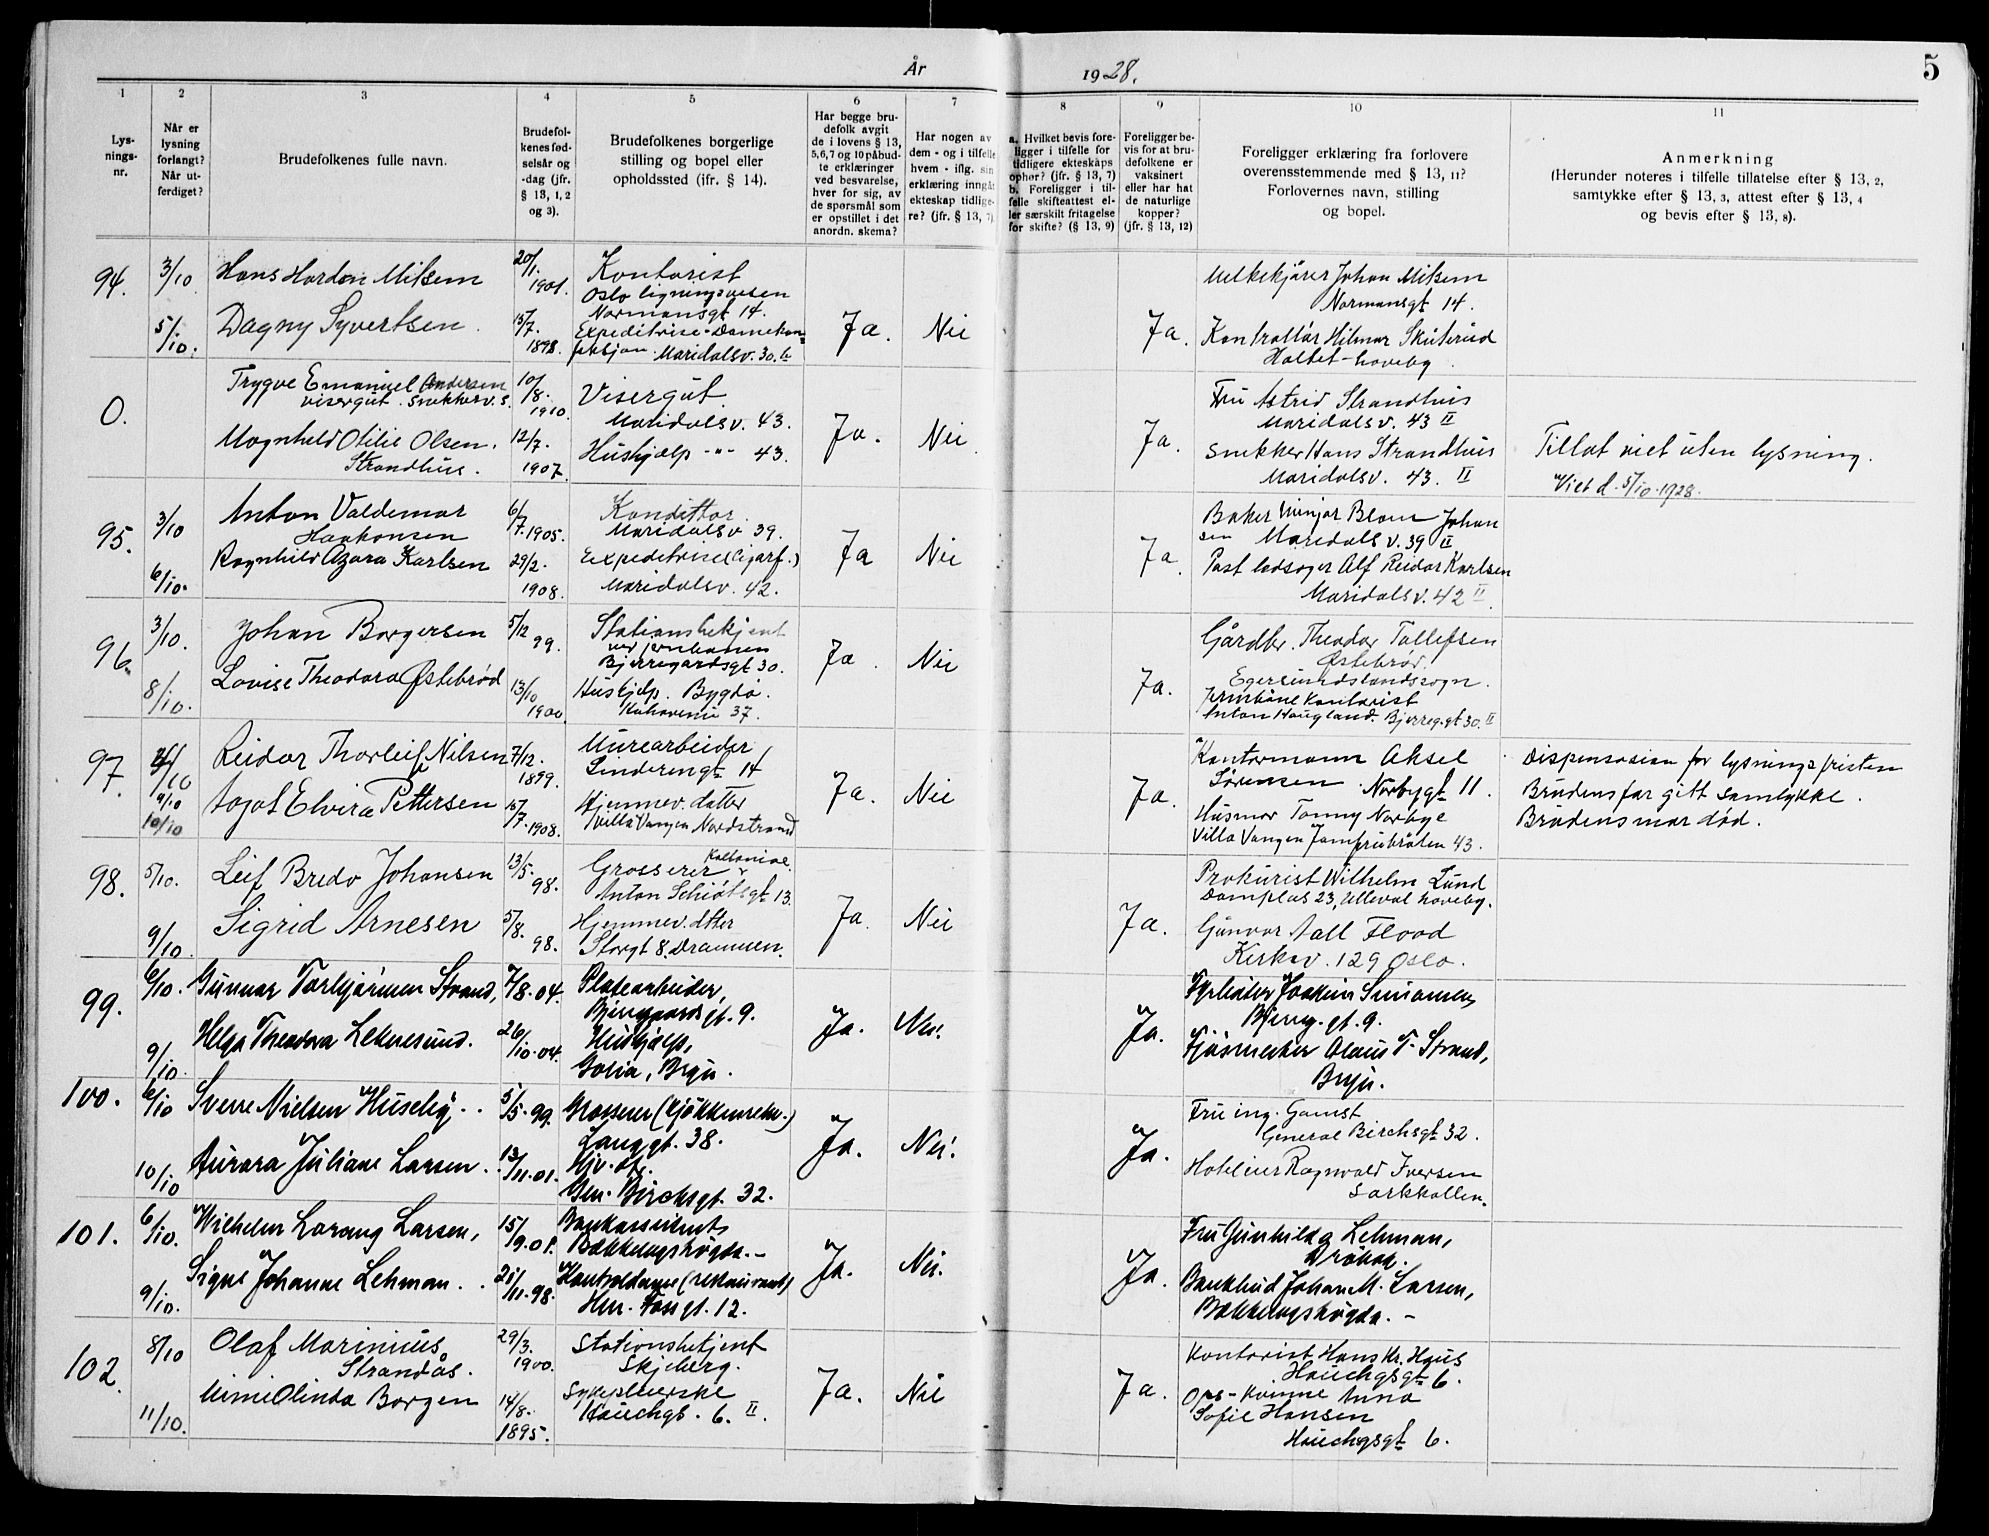 År 1928.
5
1
2
3
4
5
6
7
8
9
10
11
Lys-
nings-
nr.
Når er
lysning
forlangt?
Når ut-
ferdiget?
Brudefolkenes fulle navn.
Brudefol-
kenes fød-
selsår og
-dag (jfr.
§ 13, 1, 2
og 3).
Brudefolkenes borgerlige
stilling og bopel eller
opholdssted (ifr. § 14).
Har begge bru-
defolk avgit
de i lovens § 13,
5,6,7 og 10 påbud-
te erklæringer
ved besvarelse,
hver for sig, av
de spørsmål som
er opstillet i det
anordn. skema?
Har nogen av
dem - og i tilfelle
hvem - iflg. sin
erklæring inngåt
ekteskap tidlige-
re? (jfr. § 13, 7)
a. Hvilket bevis fore-
ligger i tilfelle for
tidligere ekteskaps
ophør? (jfr. § 13, 7)
b. Foreligger i til-
felle skifteattest el-
ler særskilt fritagelse
for skifte? (§ 13, 9)
Foreligger be-
vis for at bru-
defolkene er
vaksinert
eller har hat
de naturlige
kopper?
(jfr. § 13, 12)
Foreligger erklæring fra forlovere
overensstemmende med § 13, 11?
Forlovernes navn, stilling
og bopel.
Anmerkning
(Herunder noteres i tilfelle tillatelse efter § 13, 2,
samtykke efter § 13, 3, attest efter § 13, 4
og bevis efter § 13, 8).
94.
3/10
5/10.
Hans Mitsem
Dagny Syvertsen.
20/1.
1901.
15/7.
1898.
Kontorist
Oslo ligningsvesen
Normansgt 14.
Expeditrise
Maridalsv. 30. b
Ja.
Nei
Ja.
Melkekjører Johan Mitsem
Normansgt 14.
Kontrollør Hilmar Skuterud
Holtet haveby.
0.
Trygve Emanuel Andersen
visergut. snekkerv.s.
Magnhild Otilie Olsen.
Strandhus.
10/8.
1910.
12/7.
1907.
Visergut.
Maridalsv. 43.
Hushjælp -"- 43.
Ja.
Nei
Ja.
Fru Astrid Strandhus
Maridalsv. 43 II
Snekker Hans Strandhus
Maridalsv. 43. II
Tillat viet uten lysning.
Viet d. 5/10.1928.
95.
3/10
6/10.
Anton Valdemar
Haakonsen
Ragnhild Karlsen
6/7.1905.
29/2.
1908.
Konditor.
Maridalsv. 39.
Expeditrise (Cigarf.)
Maridalsv. 42.
Ja
Nei
Ja.
Baker Blom Johan
sen Maridalsv. 39 II
Alf Reidar Karlsen
Maridalsv. 42 II.
96.
3/10.
8/10.
Johan Borgersen
Lovise Theodora Østebrød
5/12
99.
13/10
1900.
Stationsbetjent
ved jernbanen
Bjerregårdsgt 30.
Hushjelp. Bygdø.
37.
Ja.
Nei
Ja.
Gårdbr. Theodor Tollefsen
Østebrød.
Egersundslandssogn.
Jernbane kontorist
Anton Haugland. Bjerreg.gt 30. II
97.
9/10
10/10
Reidar Thorleif Nilsen
Elvira Pettersen
7/12.
1899.
15/7.1908.
Murearbeider
14
Hjemmev. datter
Villa Vangen Nordstrand
Ja.
Nei
Ja.
Kontormann Aksel
Sørensen. Norbygt 11.
Husmor Tonny Norbye
Villa Vangen Jomfrubråten 43.
Dispensasion for lysningsfristen
Brudens far gitt samtykke.
Brudens mor død.
98.
5/10.
9/10.
Leif Bredo Johansen
Sigrid Arnesen
13/5.
98.
5/8.
98.
Grosserer Kolonial.
Anton Schiøtsgt 13.
Hjemmev. dtter
Storgt 8. Drammen.
Ja.
Nei
Ja.
Prokurist Wilhelm Lund
Damplas 23, Ulleval haveby.
Gunvor Aall Flood
Kirkev. 129 Oslo.
99.
6/10.
9/10.
Gunnar Strand,
Helga Theodora Leknesund.
7/8.04.
26/10.04.
Platearbeider,
Bjerregaards gt. 9.
Hushjælp,
Bryn.
Ja.
Nei.
Ja.
Fyrbøter Joakim Simonsen,
Bjerreg. gt. 9.
Olaus T. Strand,
Bryn.
100.
6/10
10/10
Sverre Nielsen Huseby..
Aurora Juliane Larsen..
5/5.99.
13/11.01.
Grosserer
Langgt. 38.
Hjv. dt.
Gen. Birchsgt. 32.
Ja.
Nei.
Ja.
Fru ing. Gamst
General Birchsgt 32.
Hotelier Ragnvald Iversen
Larkkollen.
101.
6/10.
9/10.
Wilhelm Larsen,
Signe Johanne Lehman..
15/9.01.
21/11.98.
Bankassistent,
Bækkelagshøgda.-
Kontordame (restaurant)
gt. 12.
Ja.
Nei.
Ja.
Fru Gunhilda Lehman,
Drøbak.
Bankbud Johan M. Larsen,
Bækkelagshøgda.-
102.
8/10
11/10.
Olaf Marinius
Strandås.
Mimi Olinda Borgen
29/3.
1900.
14/8.
1895.
Stationsbetjent
Skjeberg.
Sykepleierske
Hauchgs. 6. II.
Ja.
Nei
Ja.
Kontorist Hans Kr. Haus
Hauchgsgt 6.
Anna
Sofie Hansen
Hauchgsgt 6.